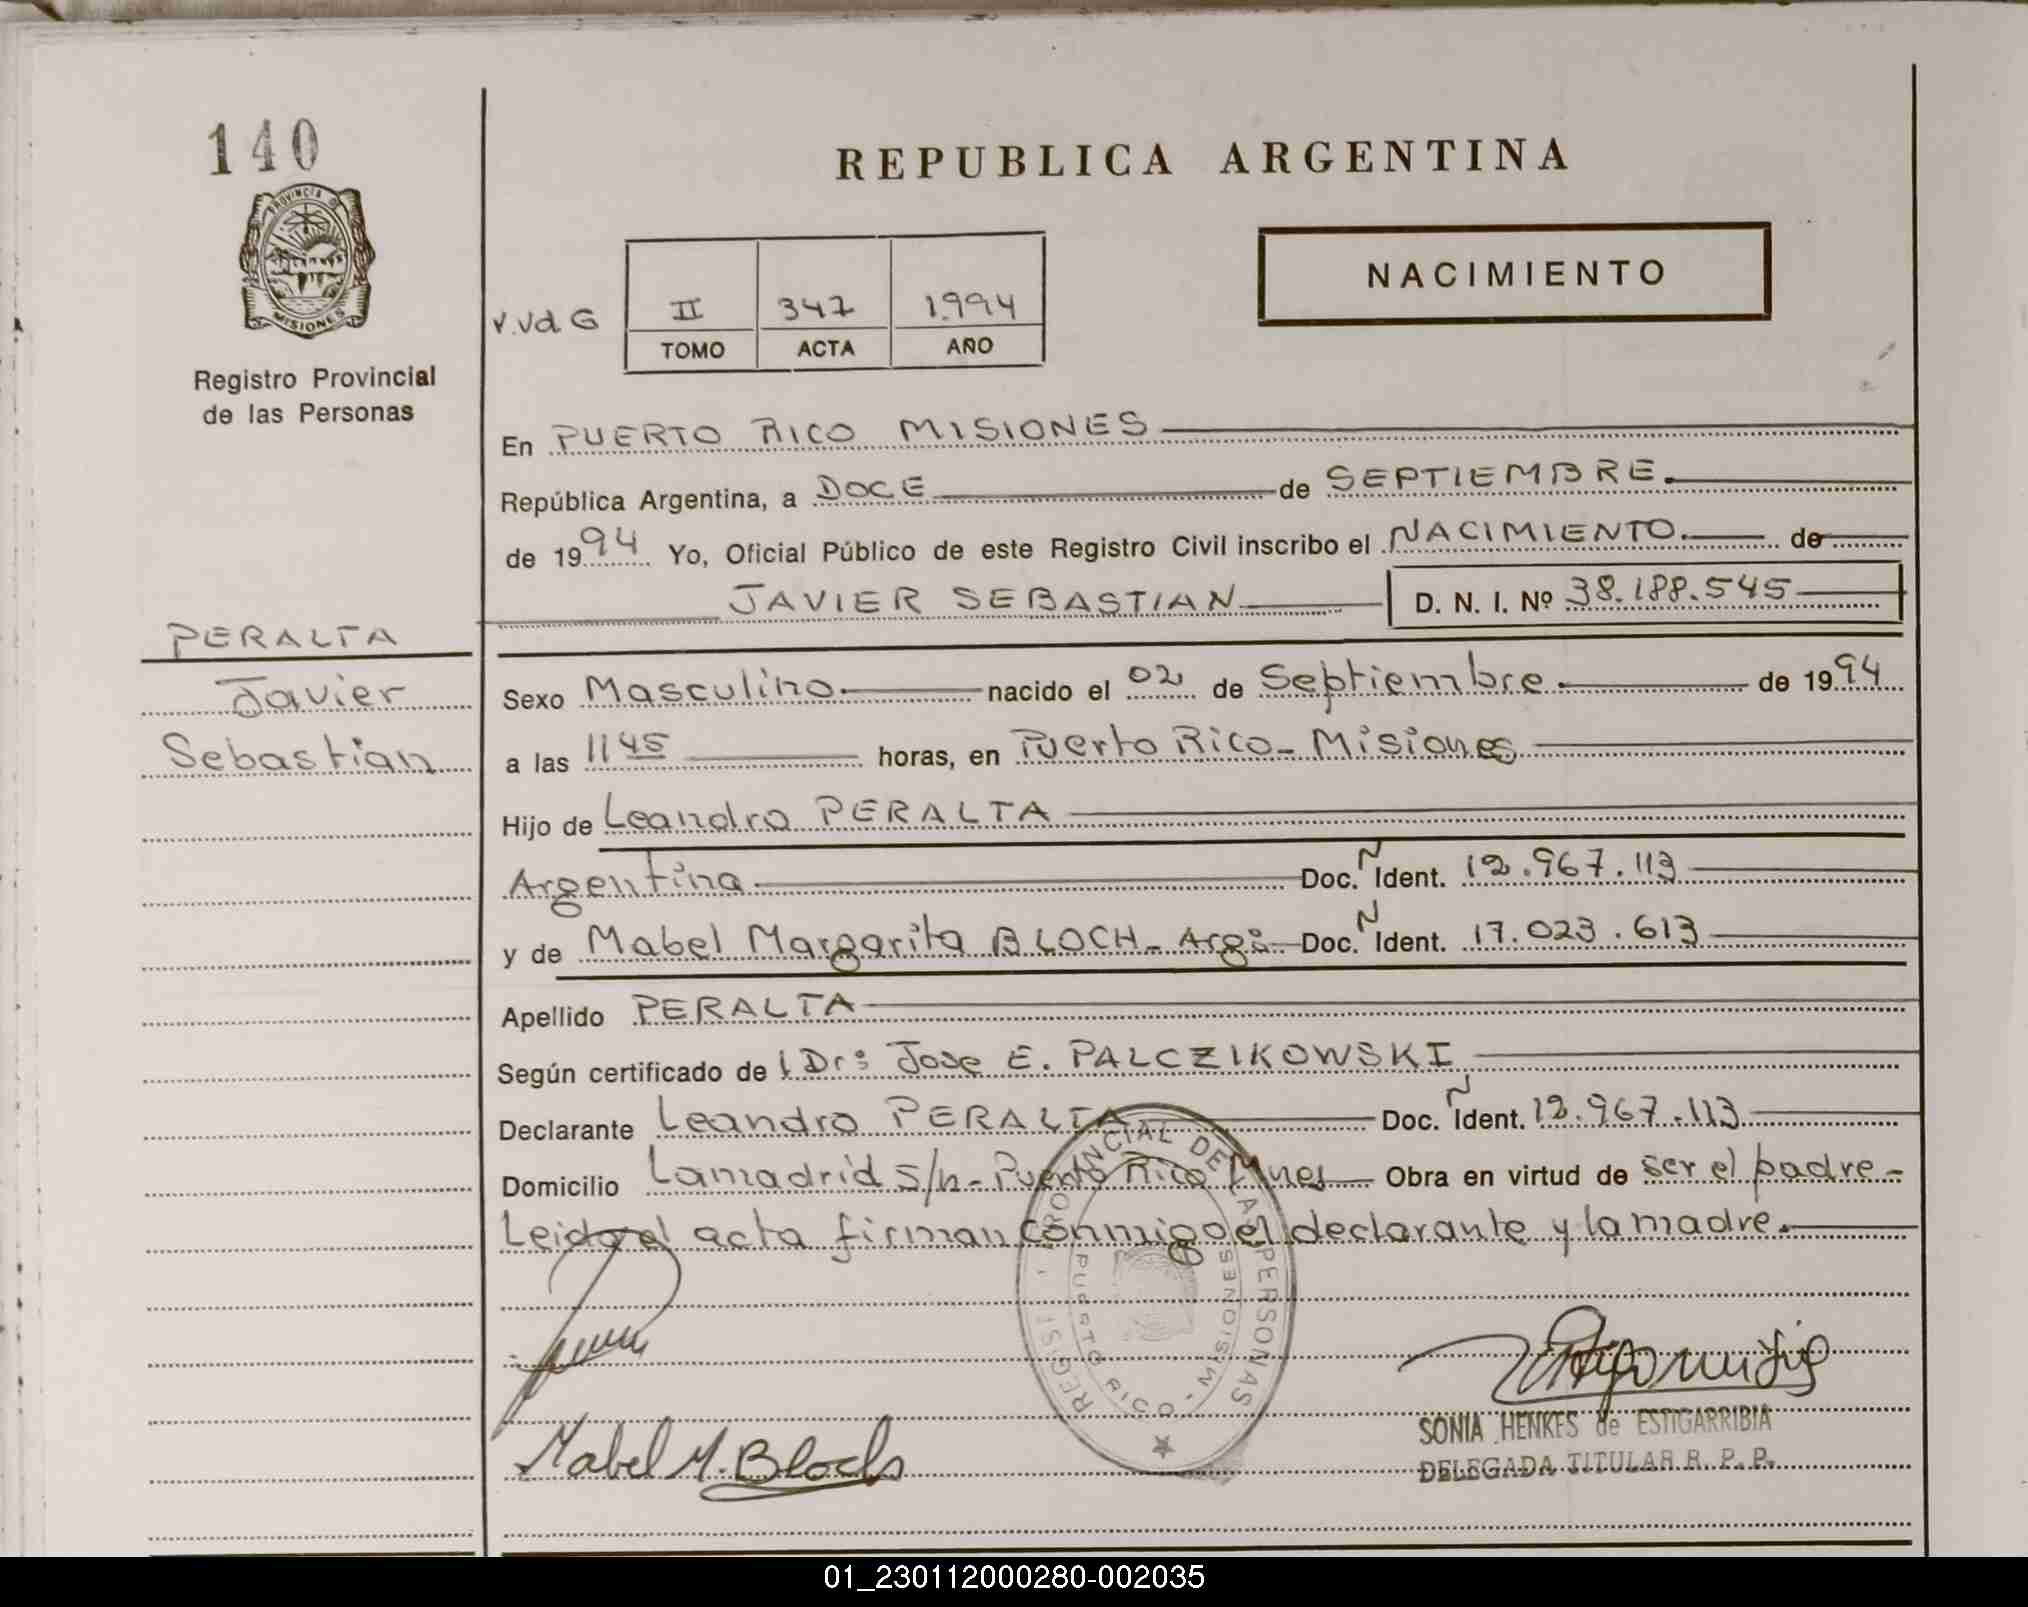 140
PROVINCIA D
MISIONES
Registro Provincial
de las Personas
REPUBLICA ARGENTINA
NACIMIENTO
V.Vd G
II 347 1.994
TOMO ACTA AÑO
En PUERTO RICO MISIONES
República Argentina, a DOCE de SEPTIEMBRE.
de 1994 Yo, Oficial Público de este Registro Civil inscribo el NACIMIENTO. de
JAVIER SEBASTIAN D. N. I. Nº 38.188.545
PERALTA
Javier
Sebastian
Sexo Masculino. nacido el 02 de Septiembre. de 1994
a las 11 45 horas, en Puerto Rico- Misiones
Hijo de Leandro PERALTA
Argentina. Doc. N Ident. 12.967.113
y de Mabel Margarita BLOCH- Arg: Doc. N Ident. 17.023.613
Apellido PERALTA
Según certificado de l Dr: Jose E. PALCZIKOWSKI
Declarante Leandro PERALTA Doc. N Ident. 12.967.113
Domicilio Lamadrid s/n- Puerto Rico Mnes Obra en virtud de ser el padre-
Leido el acta firman conmigo el declarante y la madre.
REGIST PROVINCIAL DE LAS PERSONAS
PUERTO RICO - MISIONES
Mabel M. Bloch
SONIA HENKES de ESTIGARRIBIA
DELEGADA TITULAR R. P. P.
01_230112000280-002035